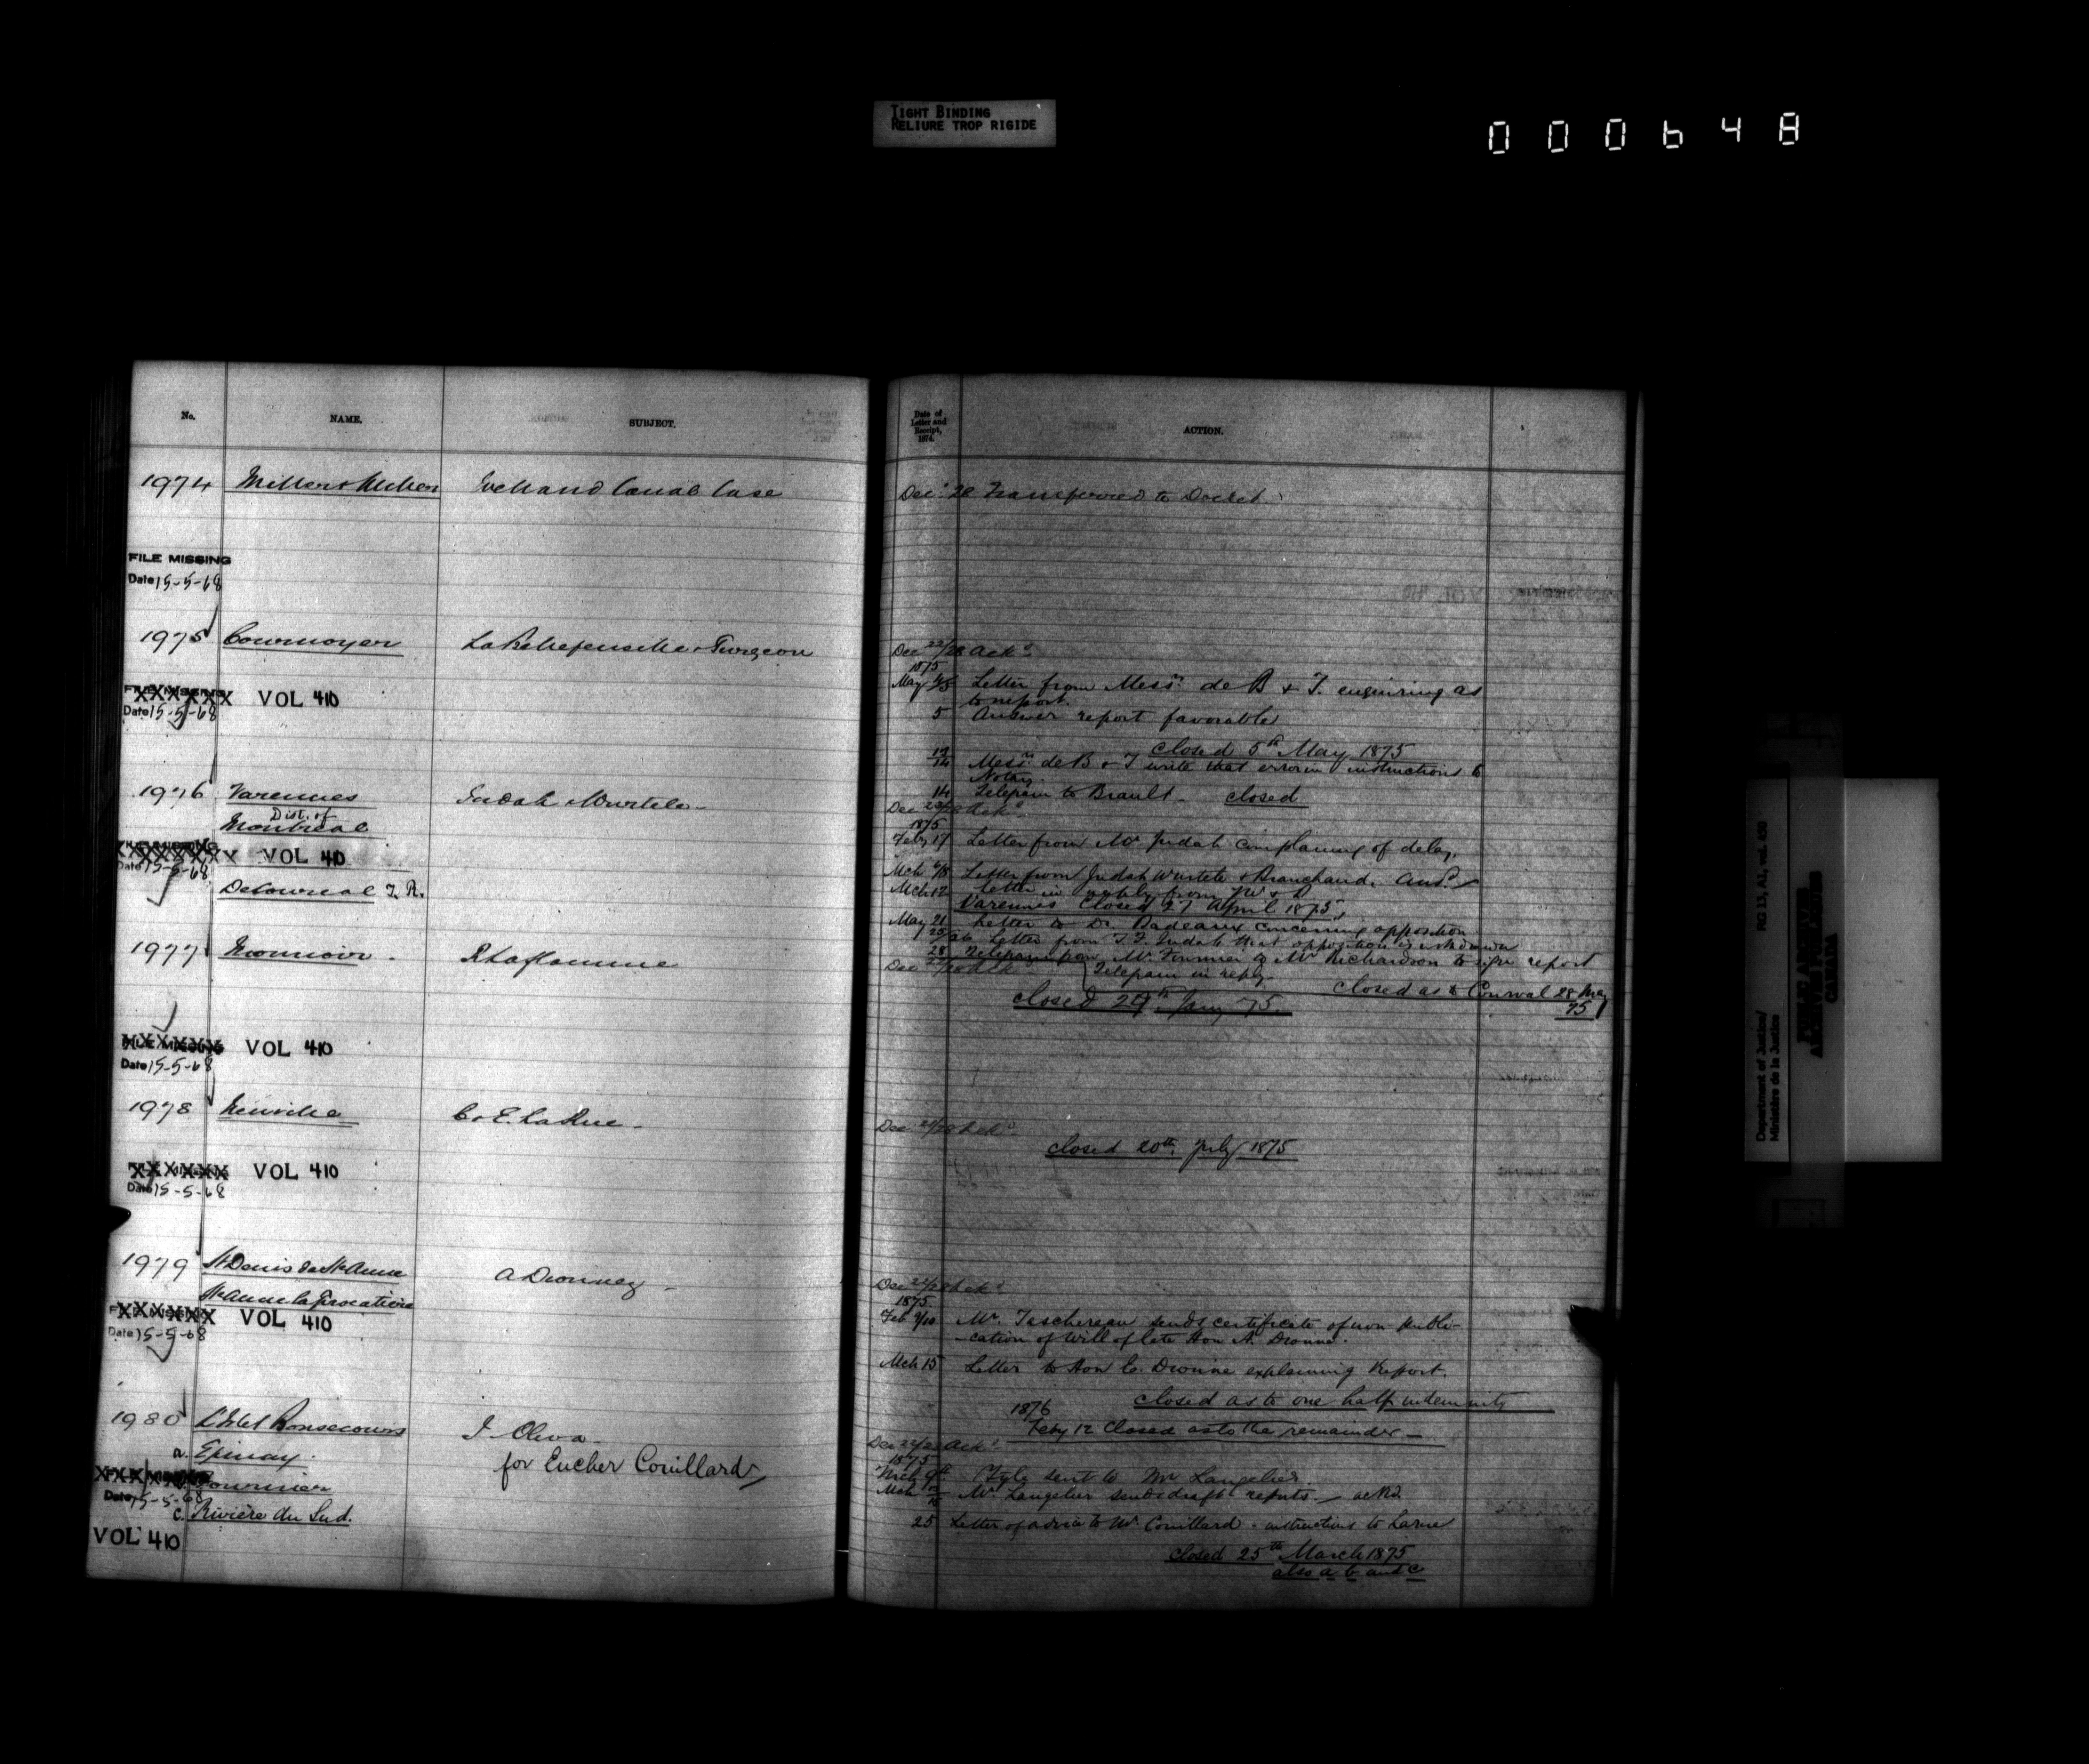 TIGHT BINDING
RELIURE TROP RIGIDE
000648
No. NAME. SUBJECT.
1974 Welland Canal Case
FILE MISSING
Date 15-5-68
1975 Cournoyer
FILE MISSING XXXXXX VOL 410
Date 15-5-68
1976 Varennes Judah & Wurtele -
Dist. of
Montreal
XXXXXXX VOL 410
Date 15-5-68
DeCournal T. R.
1977 Monnoir - R Laflamme
FILE MISSING XXXXXX VOL 410
Date 15-5-68
1978 Neuville C. E. LaRue -
XXXXXX VOL 410
Date 15-5-68
1979 St Denis de St Anne A Dionne -
St Anne la Pocatière
XXXXXX VOL 410
Date 15-5-68
1980 L'Islet Bonsecours J. Oliva -
a. Epinay. for Eucher Couillard
XXXXXX Fournier
Date 15-5-68
c. Rivière du Sud.
VOL 410
Date of
Letter and
Receipt,
1874.
ACTION.
Dec. 28 Transferred to Docket.
Dec 22/28 Ackd.
1875
May 4/5 Letter from Messrs. de B & T. enquiring as
to report.
5 Answer report favorable
closed 5th May 1875
12/14 Messrs. de B & T write that error in instructions to
Notary.
14 Telegram to Brault - closed
Dec 22/28 Ackd.
1875
Feby 17 Letter from Mr Judah complaining of delay.
Mch 6/8 Letter from Judah Wurtele & Branchaud. Ansd.
Mch 12 Letter in reply from W & B
Varennes Closed 27 April 1875
May 21 Letter to Dr. Badeaux concerning opposition
25/26 Letter from T. Judah that opposition is withdrawn
28 Telegram from Mr. Fournier & Mr Richardson to sign report
Telegram in reply.
closed as to Cournal 28 May
75
closed 29th Jany 75.
Dec 22/28 Ackd.
closed 20th. July 1875
Dec 22/28 Ackd.
1875.
Feb 9/10 Mr. Taschereau sends certificate of non publi-
-cation of Will of late Hon A. Dionne.
Mch 15 Letter to Hon E. Dionne explaining Report.
closed as to one half indemnity
1876
Feby 12 Closed as to the remainder -
Dec 22/28 Ackd.
1875
Mch 9th Fyle sent to Mr Langelier.
Mch Mr. Langelier sends draft reports. - ackd
25 Letter of advice to Mr. Couillard - instructions to Larue
Closed 25th March 1875
also a b and c
Department of Justice/
Ministère de la Justice
RG 13, A1, vol. 430
PUBLIC ARCHIVES
ARCHIVES PUBLIQUES
CANADA